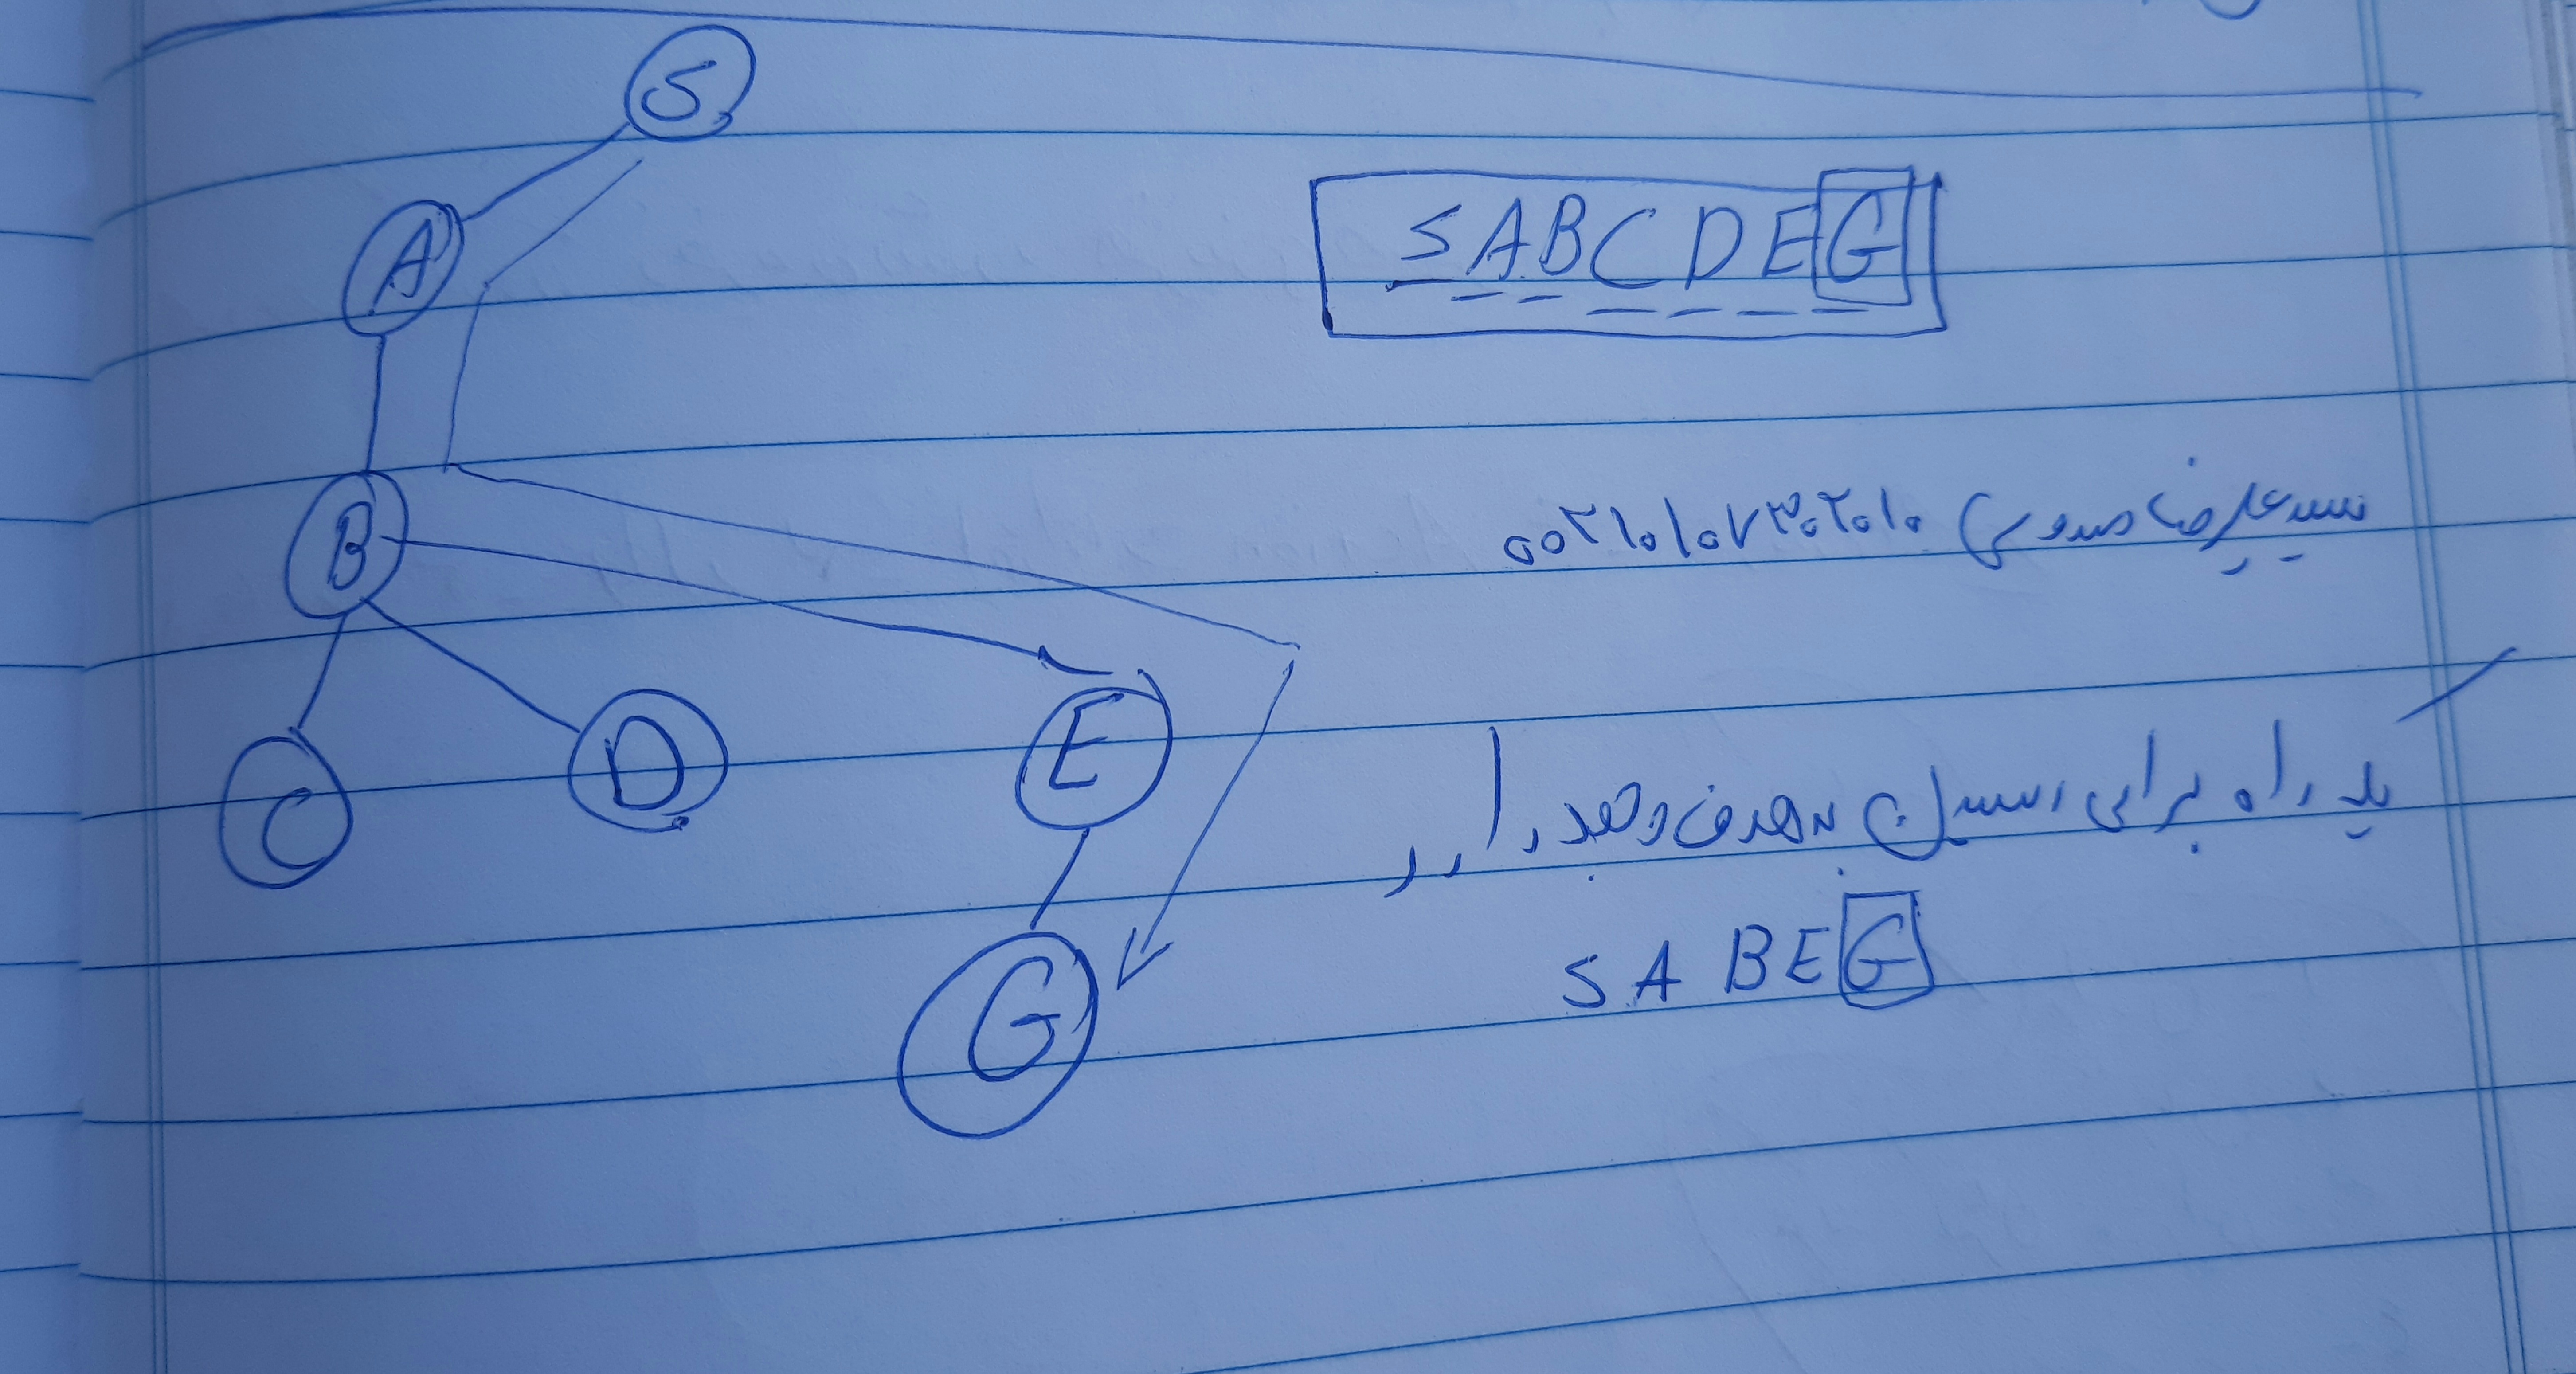 S
A
B
C
D
E
G
SABCDEG
سید علیرضا صدوسی ۰۰۲۱۰۱۰۷۳۰۲۰۱۰
یک راه برای رسیدن به هدف وجود دارد
SABEG